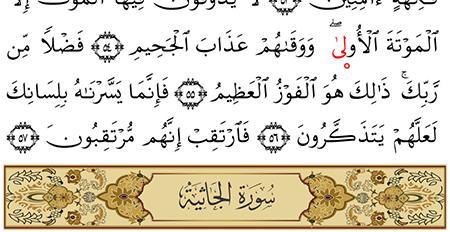 فَٰكِهَةٍ ءَامِنِينَ لَا يَذُوقُونَ فِيهَا ٱلْمَوْتَ إِلَّا
ٱلْمَوْتَةَ ٱلْأُولَىٰ ۖ وَوَقَىٰهُمْ عَذَابَ ٱلْجَحِيمِ ٥٤ فَضْلًا مِّن
رَّبِّكَ ۚ ذَٰلِكَ هُوَ ٱلْفَوْزُ ٱلْعَظِيمُ ٥٥ فَإِنَّمَا يَسَّرْنَٰهُ بِلِسَانِكَ
لَعَلَّهُمْ يَتَذَكَّرُونَ ٥٦ فَٱرْتَقِبْ إِنَّهُم مُّرْتَقِبُونَ ٥٧
سُورَةُ الجَاثِيَةِ